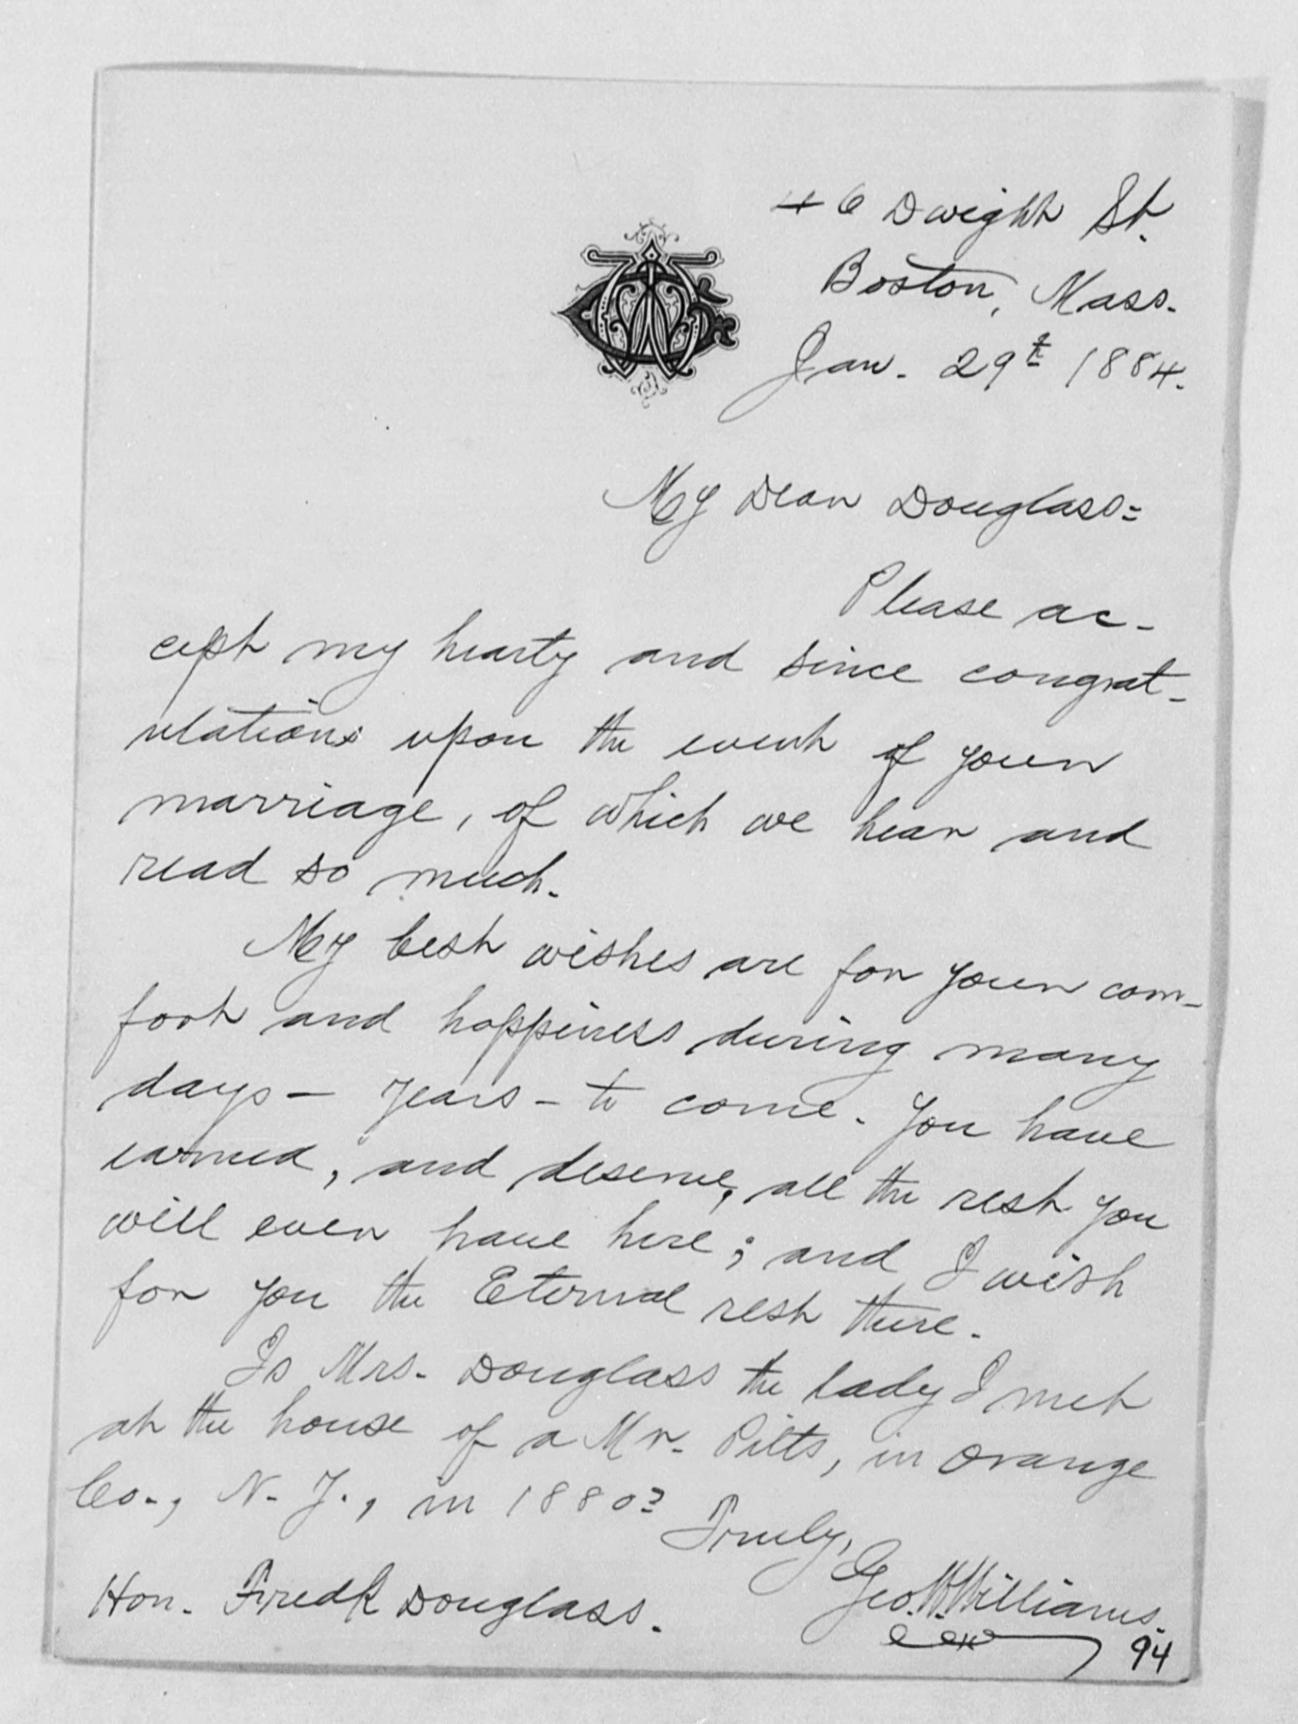 46 Dwight St.
Boston, Mass.
Jan. 29th 1884.
My Dear Douglass:
Please ac-
cept my hearty and since congrat-
ulations upon the event of your
marriage, of which we hear and
read so much.
My best wishes are for your com-
fort and happiness during many
days – years – to come. You have
earned, and deserve, all the rest you
will ever have here; and I wish
for you the Eternal rest there.
Is Mrs. Douglass the lady I met
at the house of a Mr. Pitts, in Orange
Co., N. J., in 1880?
Truly,
Geo. W. Williams.
Hon. Fredk Douglass.
94